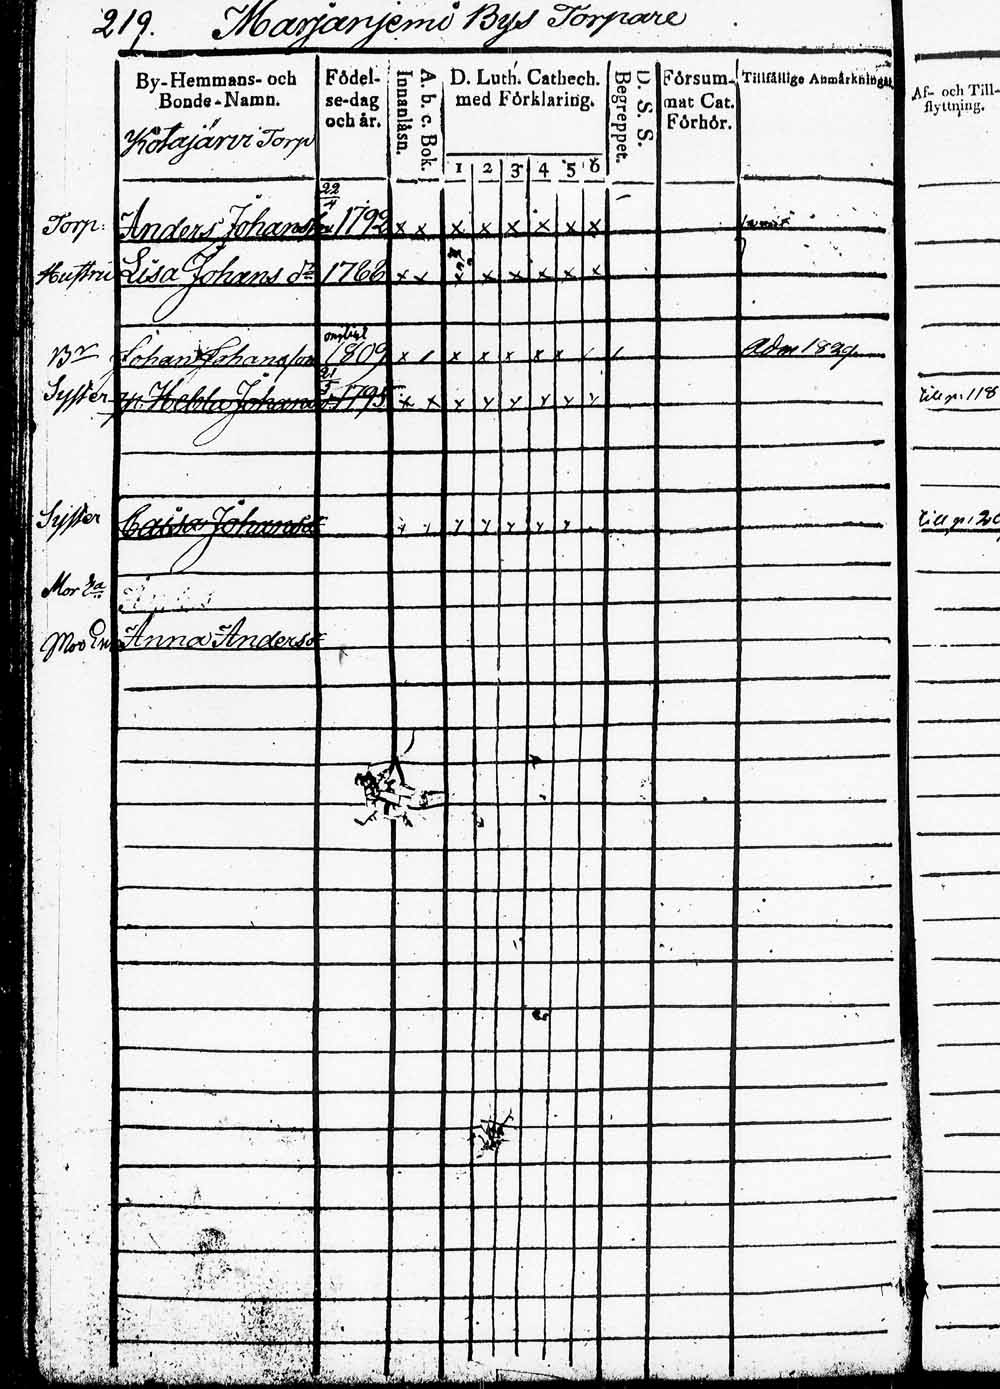 219. Marjanjemi Bys Torpare
By-Hemmans- och Bonde-Namn.
Födel-se-dag och år.
Innanläsn.
A. b. c. Bok.
D. Luth. Cathech. med Förklaring.
1 2 3 4 5 6
Begreppet.
D. S. S.
Försum-mat Cat. Förhör.
Tillfällige Anmärkningar.
Af- och Till-flyttning.
Kotajärvi Torp
Torp: Anders Johansson 22/4 1792 x x x x x x x x
Hustru Lisa Johans dr 1766 x x x x x x x x
Br Johan Johansson 1809 x / x x x x x Adm 1829
Syster Hebla Johans 21/5 1795 x x x x x x x x till p. 118
Syster Caisa Johansd till p.
Mor
Mor Anna Andersd